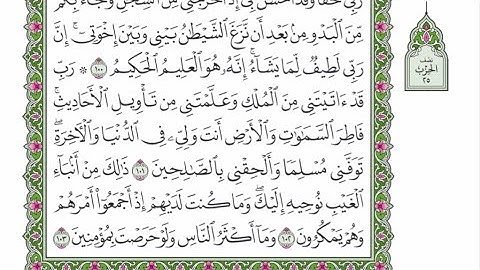 رَبِّي حَقًّا وَقَدْ أَحْسَنَ بِي إِذْ أَخْرَجَنِي مِنَ ٱلسِّجْنِ وَجَآءَ بِكُم
مِّنَ ٱلْبَدْوِ مِنۢ بَعْدِ أَن نَّزَغَ ٱلشَّيْطَٰنُ بَيْنِي وَبَيْنَ إِخْوَتِيٓ ۚ إِنَّ
رَبِّي لَطِيفٌ لِّمَا يَشَآءُ ۚ إِنَّهُۥ هُوَ ٱلْعَلِيمُ ٱلْحَكِيمُ ١٠٠ ۞ رَبِّ
قَدْ ءَاتَيْتَنِي مِنَ ٱلْمُلْكِ وَعَلَّمْتَنِي مِن تَأْوِيلِ ٱلْأَحَادِيثِ ۚ
فَاطِرَ ٱلسَّمَٰوَٰتِ وَٱلْأَرْضِ أَنتَ وَلِيِّۦ فِي ٱلدُّنْيَا وَٱلْأٓخِرَةِ ۖ
تَوَفَّنِي مُسْلِمًا وَأَلْحِقْنِي بِٱلصَّٰلِحِينَ ١٠١ ذَٰلِكَ مِنْ أَنۢبَآءِ
ٱلْغَيْبِ نُوحِيهِ إِلَيْكَ ۖ وَمَا كُنتَ لَدَيْهِمْ إِذْ أَجْمَعُوٓا۟ أَمْرَهُمْ
وَهُمْ يَمْكُرُونَ ١٠٢ وَمَآ أَكْثَرُ ٱلنَّاسِ وَلَوْ حَرَصْتَ بِمُؤْمِنِينَ ١٠٣
نصف
الحزب
٢٥